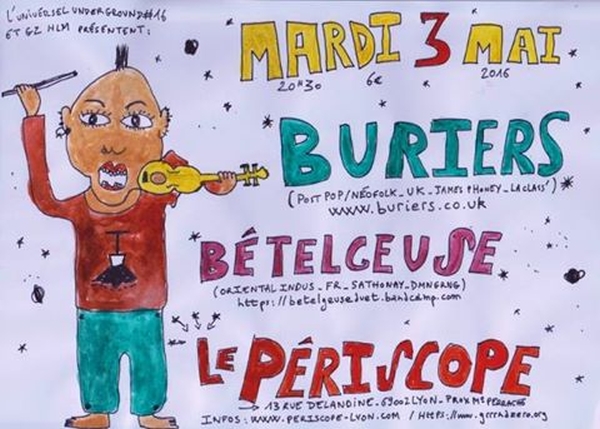 L'UNIVERSEL UNDERGROUND#16
ET GZ HLM PRÉSENTENT:
MARDI 3 MAI
20H30 6€ 2016
BURIERS
(POST POP/NÉOFOLK_UK_JAMES P HONEY_LA CLASS')
www.buriers.co.uk
BÉTELGEUSE
(ORIENTAL INDUS_FR_SATHONAY_DMNGRNG)
https://betelgeuseduet.bandcamp.com
LE PÉRISCOPE
13 RUE DELANDINE_69002 LYON_PROX M° PERRACHE
INFOS: www.PERISCOPE-LYON.COM / https://www.grrrndzero.org